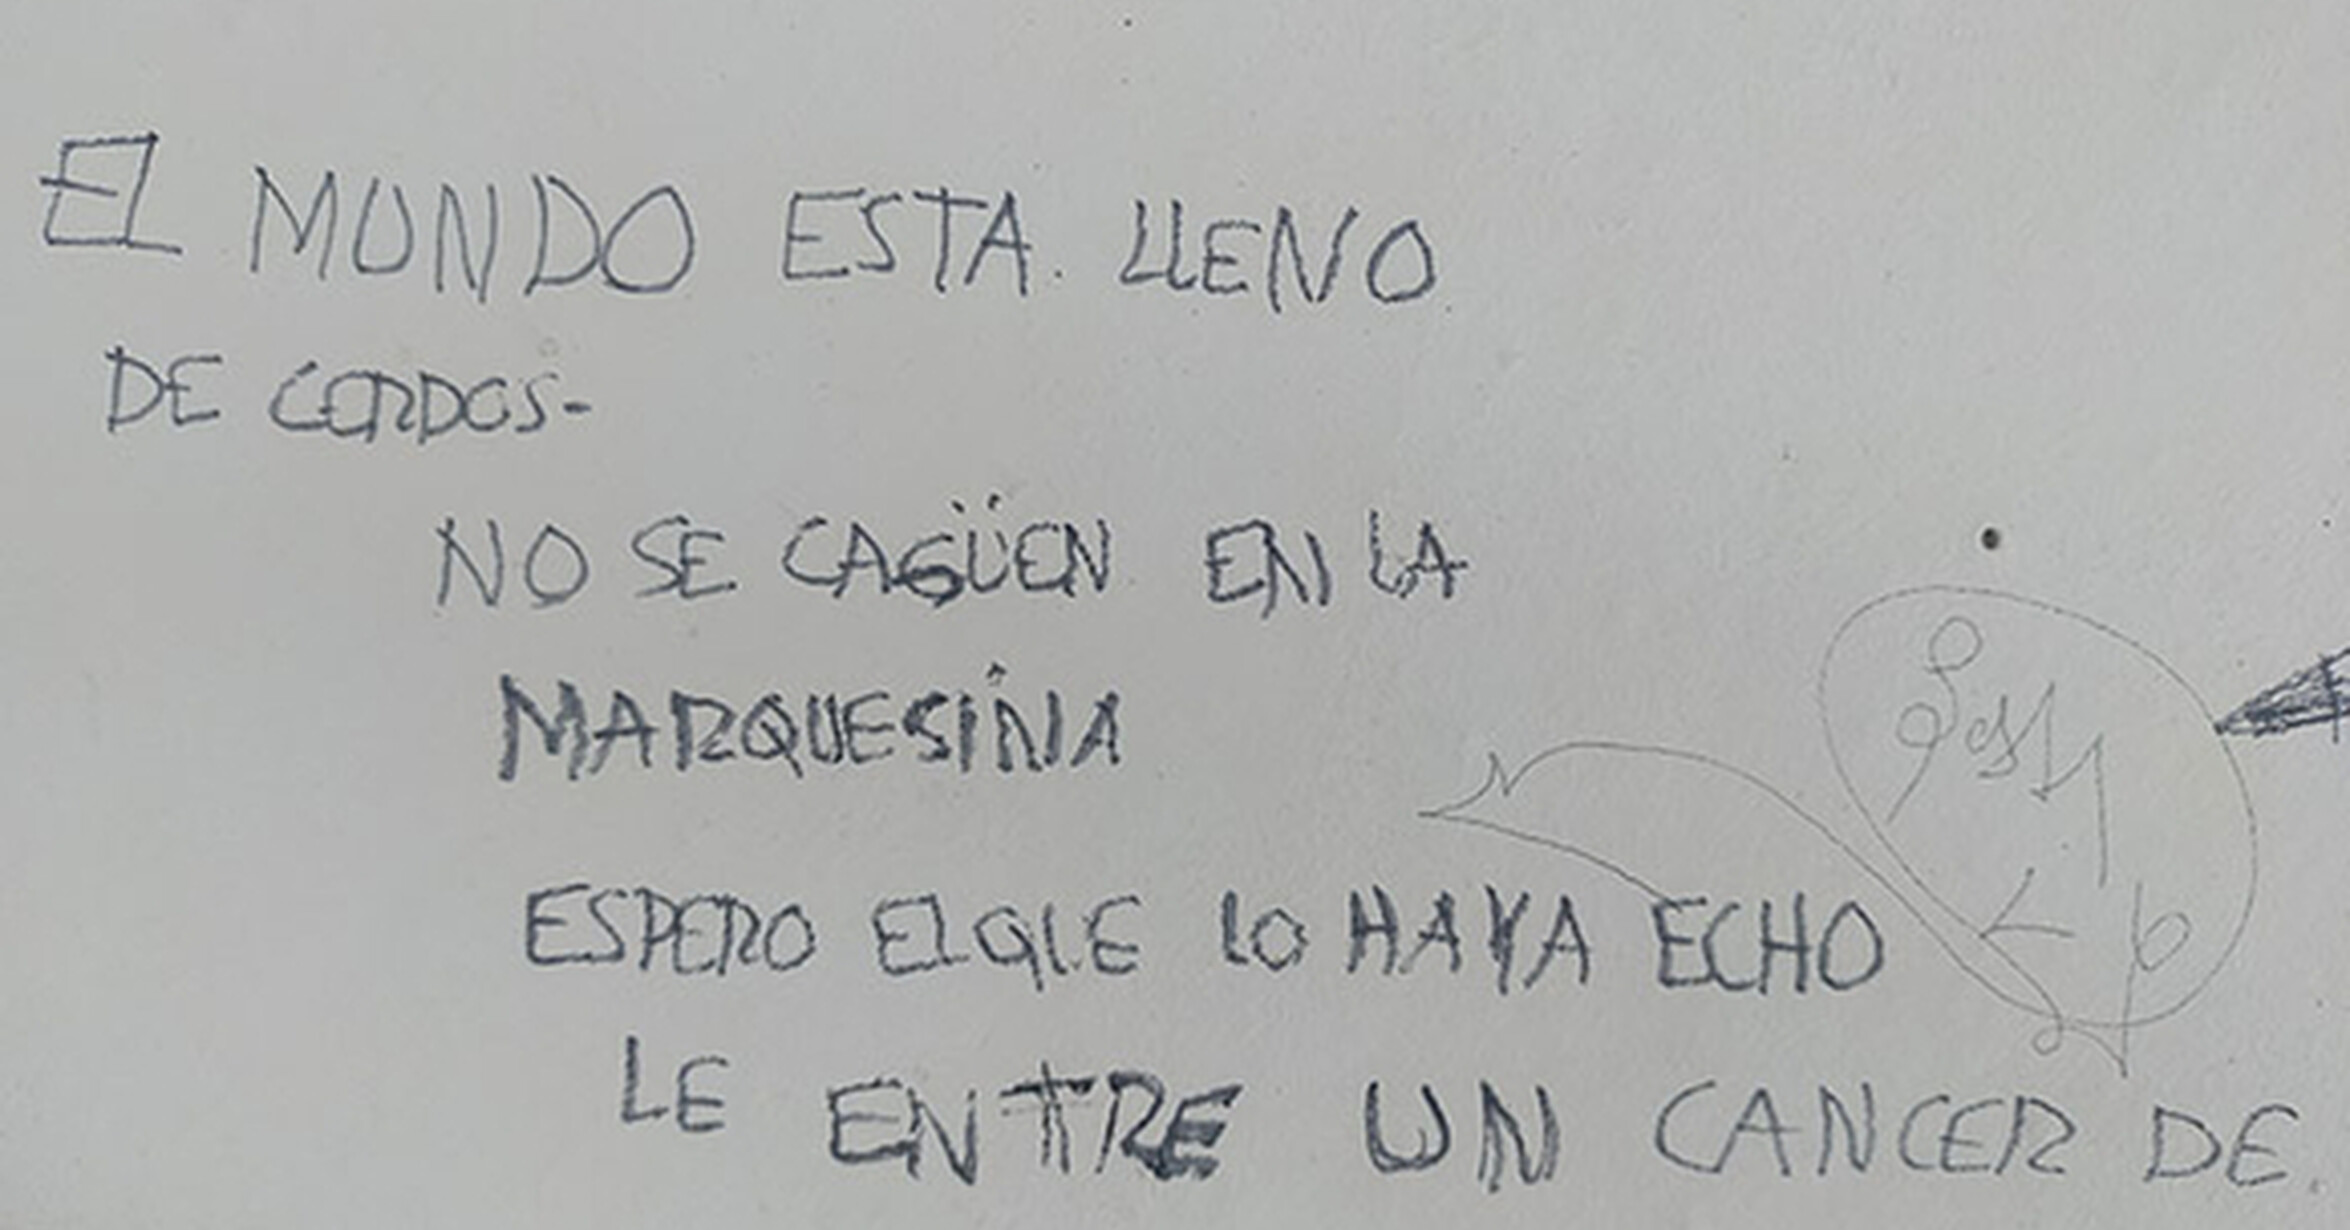 EL MUNDO ESTA. LLENO
DE CORDOS-
NO SE CAGÜEN EN LA
MARQUESINA
ESPERO EL QUE LO HAYA ECHO
LE ENTRE UN CANCER DE.